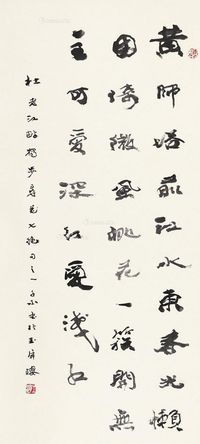 黄師塔前江水東春光懶
困倚微風桃花一簇開無
主可愛深紅愛淺紅
杜老江畔獨步尋花七絕句之一